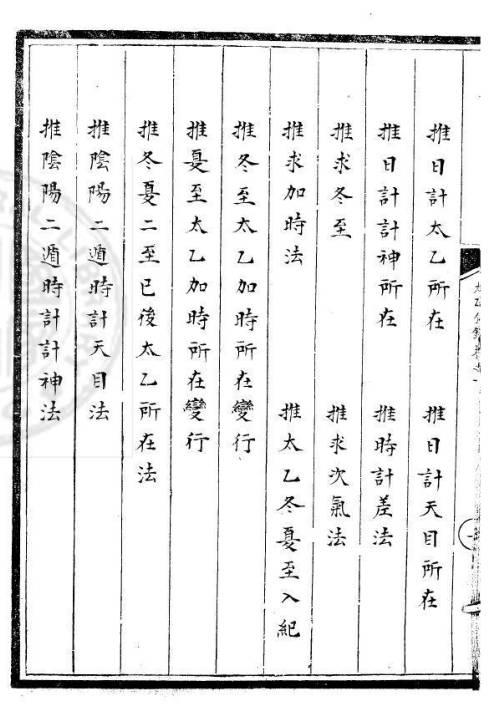 推日計太乙所在　推日計天目所在
推日計計神所在　推時計差法
推求冬至　推求次氣法
推求加時法　推太乙冬夏至入紀
推冬至太乙加時所在變行
推夏至太乙加時所在變行
推冬夏二至已後太乙所在法
推陰陽二遁時計天目法
推陰陽二遁時計計神法